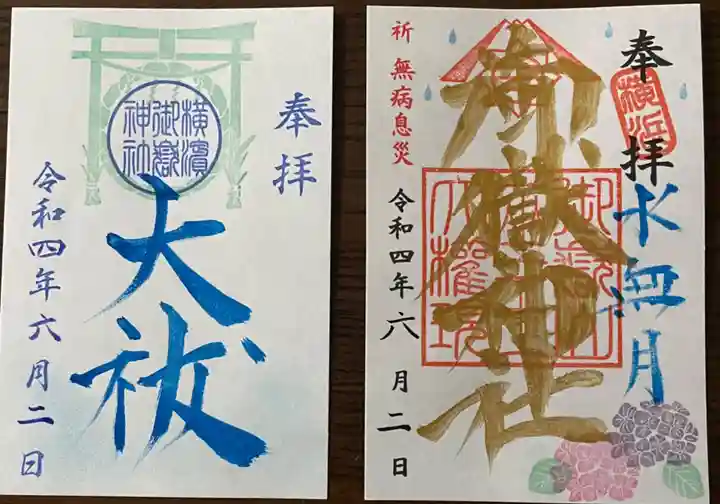 奉拝
横濱
御嶽
神社
大祓
令和四年六月二日
奉拝
横浜
水無月
御嶽神社
祈 無病息災
令和四年六月二日